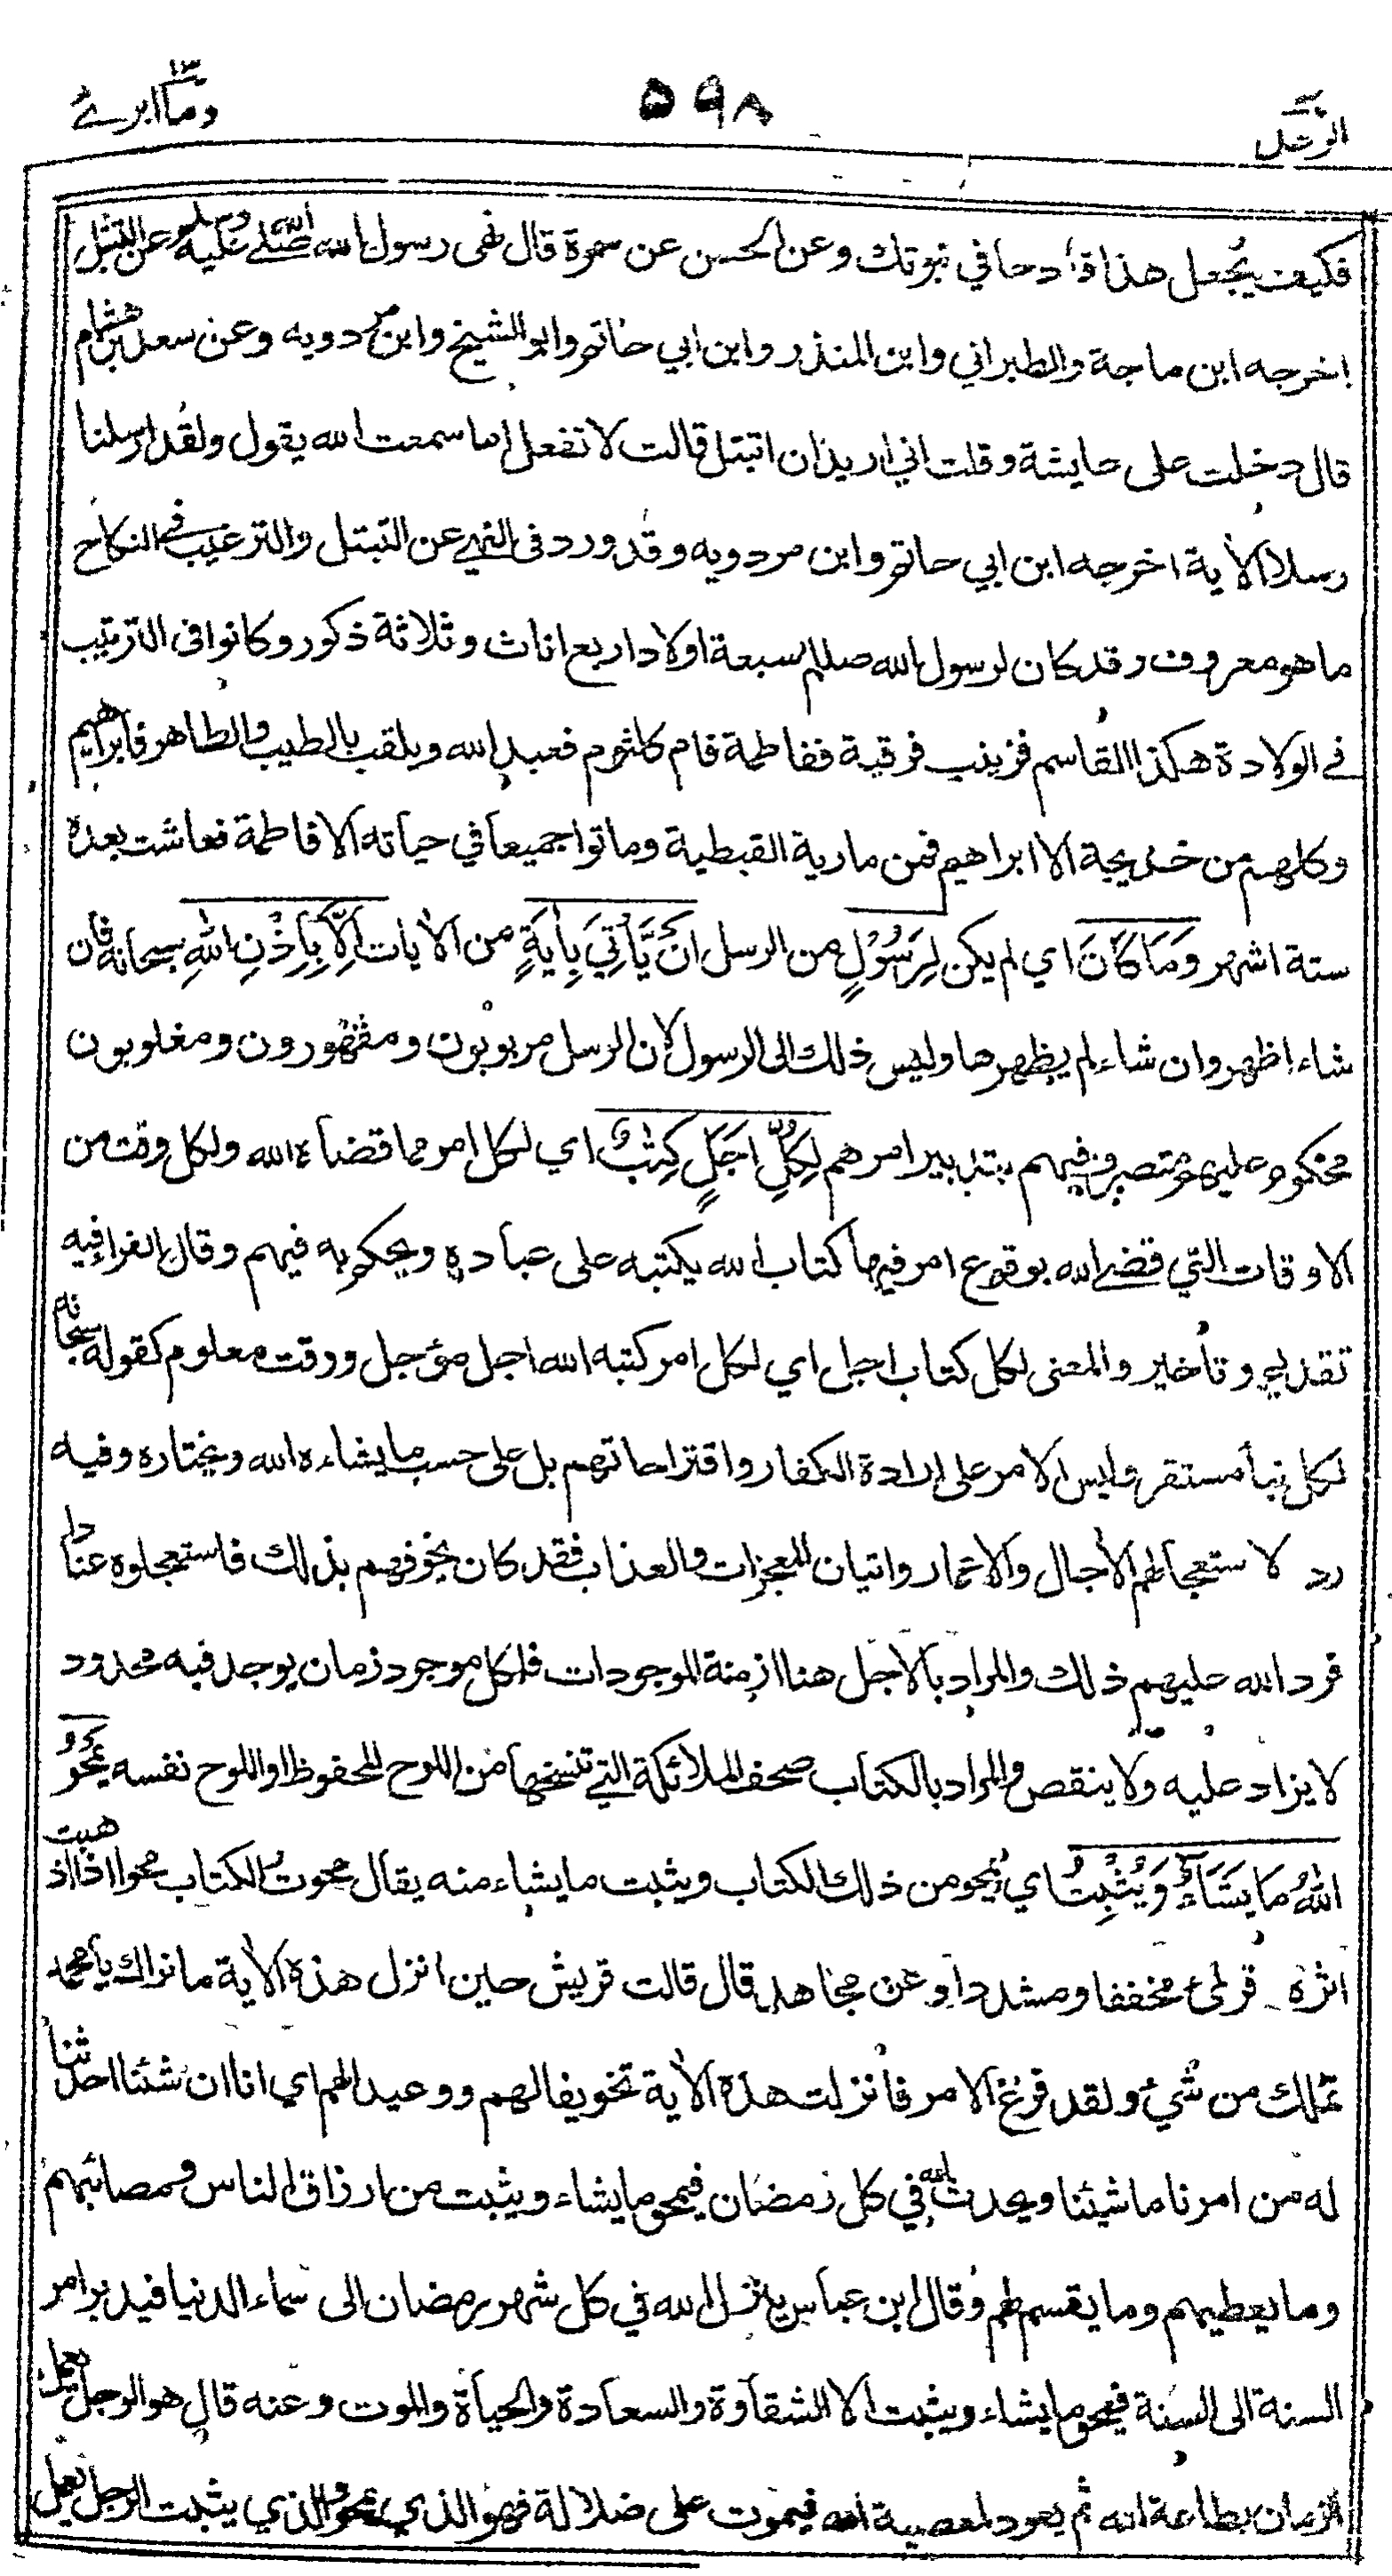 الرعد
٥٩٨
وما ابرئ
١٣
فكيف يجعل هذا قادحا في نبوتك وعن الحسن عن سمرة قال نهى رسول الله صلى الله عليه وسلم عن التبتل
اخرجه ابن ماجة والطبراني وابن المنذر وابن ابي حاتم وابو الشيخ وابن مردويه وعن سعد بن هشام
قال دخلت على عايشة وقلت اني اريد ان اتبتل قالت لا تفعل اما سمعت الله يقول ولقد ارسلنا
رسلا الآية اخرجه ابن ابي حاتم وابن مردويه وقد ورد فى النهي عن التبتل والترغيب فى النكاح
ما هو معروف وقد كان لرسول الله صللم سبعة اولاد اربع اناث وثلاثة ذكور وكانوا فى الترتيب
فى الولادة هكذا القاسم فزينب فرقية ففاطمة فام كلثوم فعبد الله ويلقب بالطيب والطاهر فابراهيم
وكلهم من خديجة الا ابراهيم فمن مارية القبطية وماتوا جميعا في حياته الا فاطمة فعاشت بعده
ستة اشهر وَمَا كَانَ اي لم يكن لِرَسُوْلٍ من الرسل اَنْ يَّأْتِيَ بِاٰيَةٍ من الآيات اِلَّا بِاِذْنِ اللّٰهِ سبحانه فان
شاء اظهر وان شاء لم يظهرها وليس ذلك الى الرسول لان الرسل مربوبون ومقهورون ومغلوبون
محكوم عليهم ومتصرف فيهم بتدبير امرهم لِكُلِّ اَجَلٍ كِتٰبٌ اي لكل امر مما قضاه الله ولكل وقت من
الاوقات التي قضى الله بوقوع امر فيها كتاب الله يكتبه على عباده ويحكم به فيهم وقال الفرا فيه
تقديم وتأخير والمعنى لكل كتاب اجل اي لكل امر كتبه الله اجل مؤجل ووقت معلوم كقوله سبحانه
لكل نبأ مستقر وليس الامر على ارادة الكفار واقتراحاتهم بل على حسب ما يشاءه الله ويختاره وفيه
رد لاستعجالهم الآجال والاعمار واتيان المعجزات والعذاب فقد كان يخوفهم بذلك فاستعجلوه عنادا
فرد الله عليهم ذلك والمراد بالاجل هنا ازمنة الموجودات فلكل موجود زمان يوجد فيه محدود
لا يزاد عليه ولا ينقص والمراد بالكتاب صحف الملائكة التي تنسخها من اللوح المحفوظ او اللوح نفسه يَمْحُو
اللّٰهُ مَا يَشَآءُ وَيُثْبِتُ اي يمحو من ذلك الكتاب ويثبت ما يشاء منه يقال محوت الكتاب محوا اذا اذهبت
اثره قرئ مخففا ومشددا وعن مجاهد قال قالت قريش حين انزل هذه الآية ما نراك يا محمد
تملك من شيء ولقد فرغ الامر فانزلت هذه الآية تخويفا لهم ووعيدا لهم اي انا ان شئنا احدثنا
له من امرنا ما شيئنا ويحدث الله في كل رمضان فيمحو ما يشاء ويثبت من ارزاق الناس ومصائبهم
وما يعطيهم وما يقسم لهم وقال ابن عباس ينزل الله في كل شهر رمضان الى سماء الدنيا فيدبر امر
السنة الى السنة فيمحو ما يشاء ويثبت الا الشقاوة والسعادة والحياة والموت وعنه قال هو الرجل يعمل
الزمان بطاعة الله ثم يعود لمعصية الله فيموت على ضلالة فهو الذي يمحو والذي يثبت الرجل يعمل